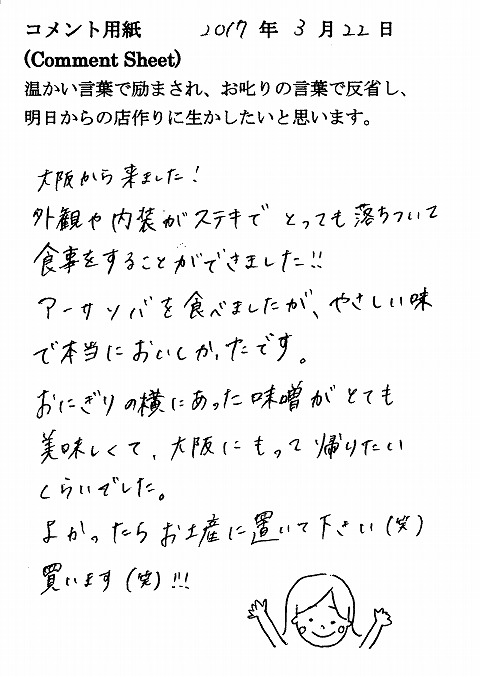 コメント用紙 2017 年 3 月 22 日
(Comment Sheet)
温かい言葉で励まされ、お叱りの言葉で反省し、
明日からの店作りに生かしたいと思います。
大阪から来ました！
外観や内装がステキで とっても落ちついて
食事をすることができました!!
アーサソバを食べましたが、やさしい味
で本当においしかったです。
おにぎりの横にあった味噌がとても
美味しくて、大阪にもって帰りたい
くらいでした。
よかったらお土産に置いて下さい(笑)
買います(笑)!!!